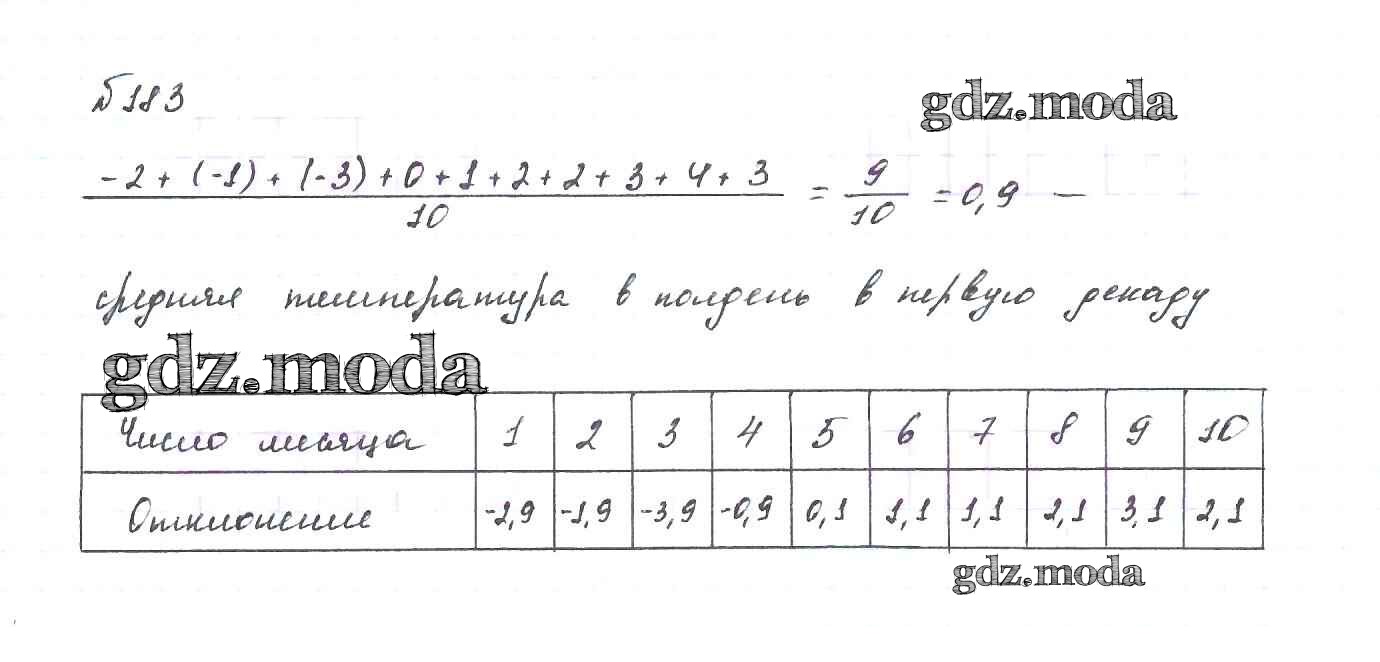 №183
gdz.moda
-2 + (-1) + (-3) + 0 + 1 + 2 + 2 + 3 + 4 + 3 / 10 = 9/10 = 0,9 —
средняя температура в полдень в первую декаду
gdz.moda
Число месяца 1 2 3 4 5 6 7 8 9 10
Отклонение -2,9 -1,9 -3,9 -0,9 0,1 1,1 1,1 2,1 3,1 2,1
gdz.moda